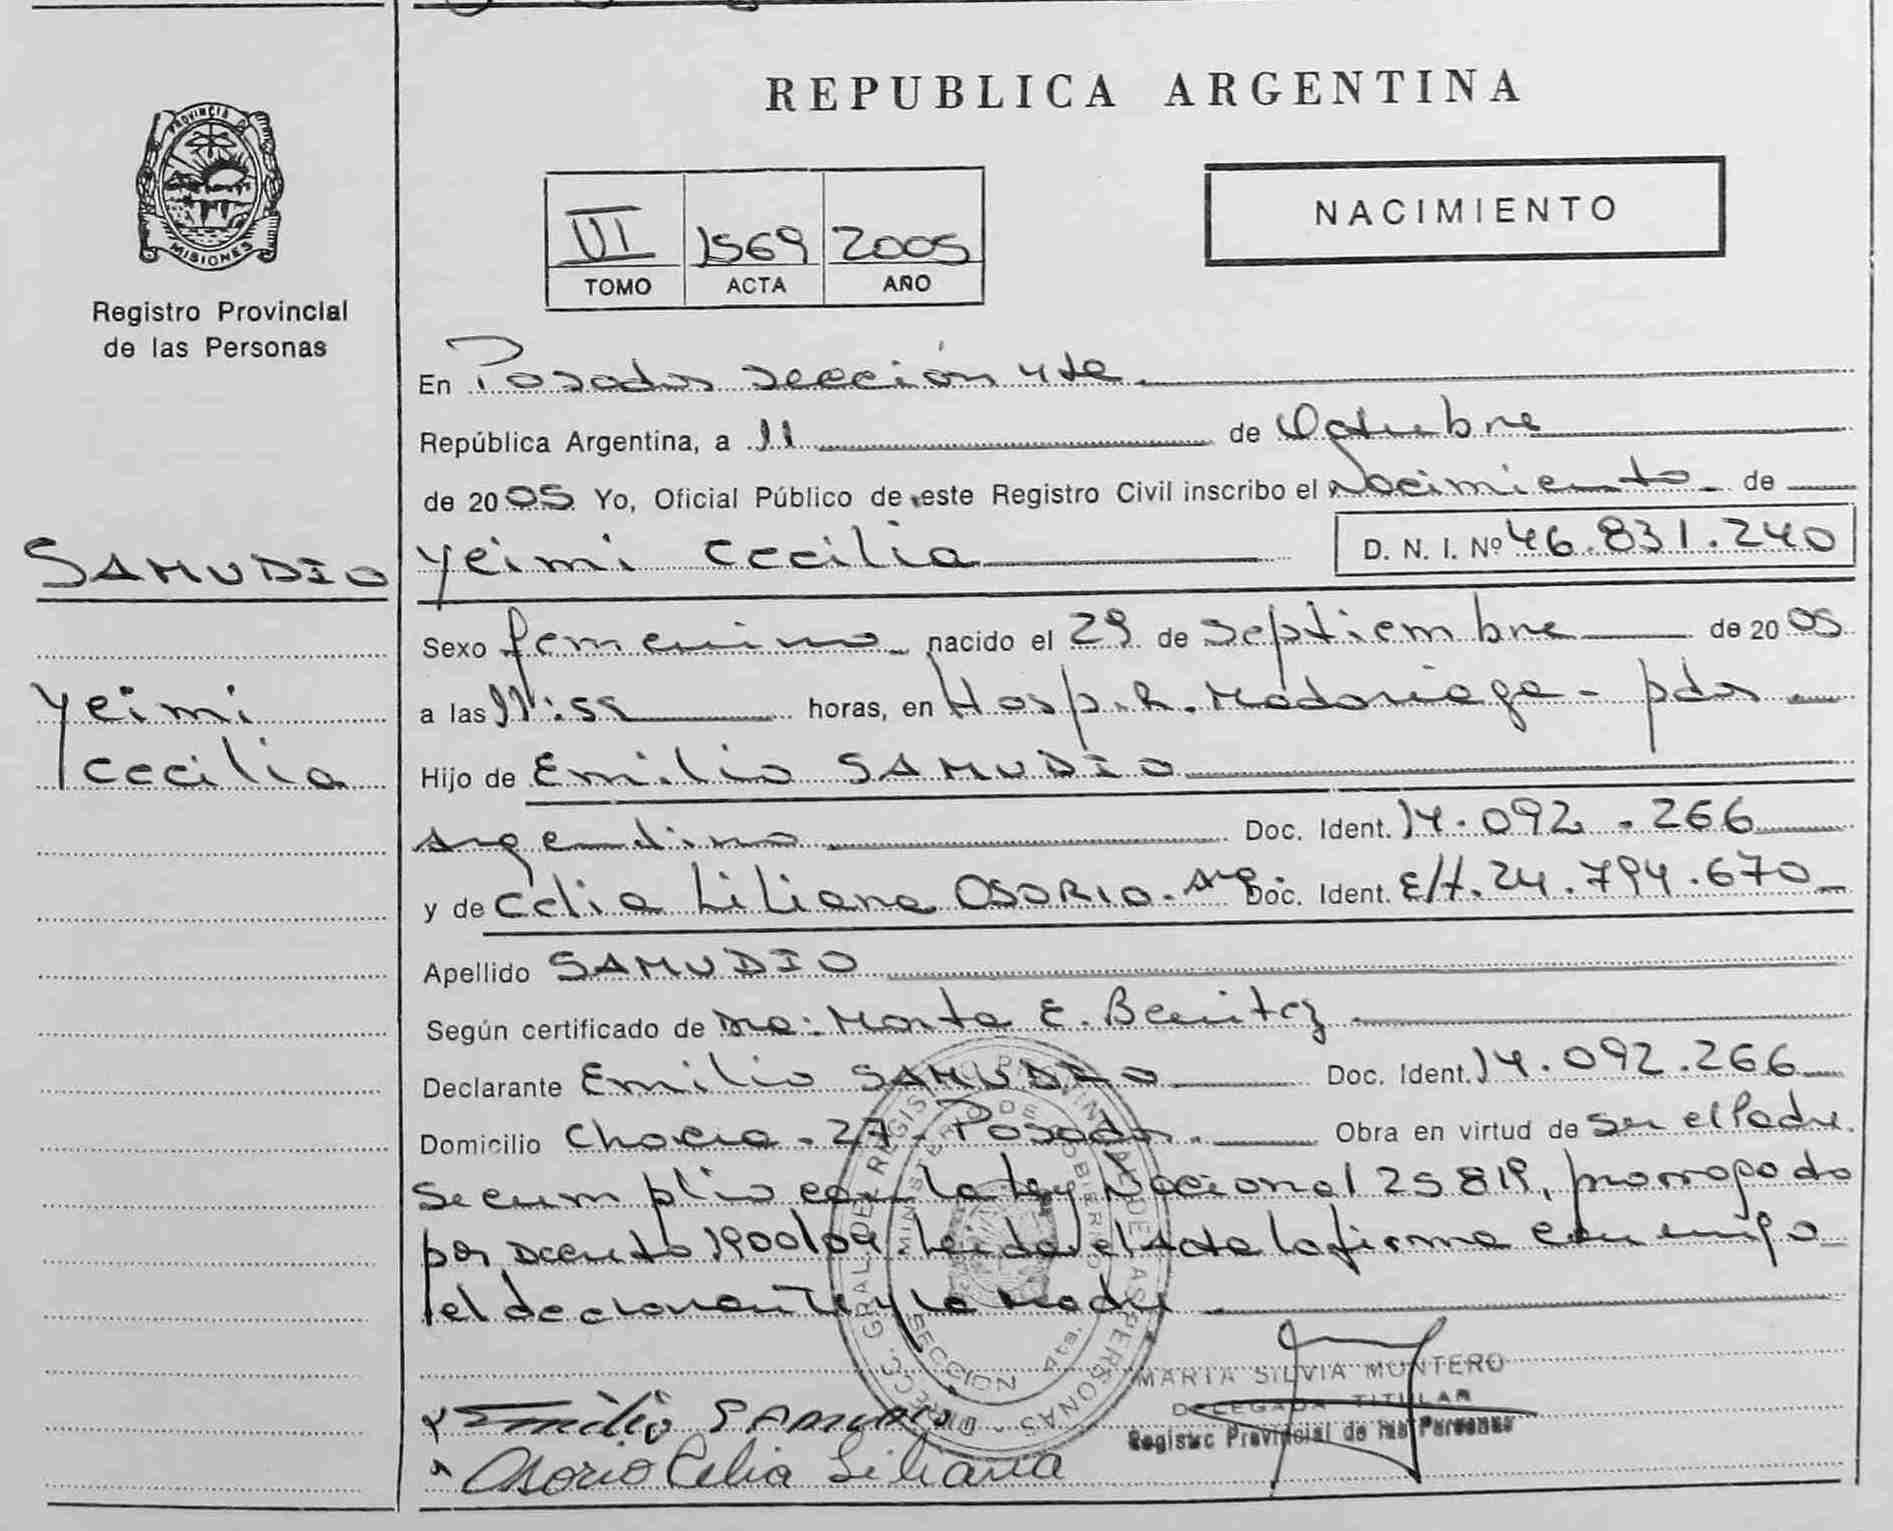 REPUBLICA ARGENTINA
PROVINCIA DE
MISIONES
Registro Provincial
de las Personas
VI 1569 2005
TOMO ACTA AÑO
NACIMIENTO
En Posadas sección 4ta
República Argentina, a 11 de Octubre
de 2005 Yo, Oficial Público de este Registro Civil inscribo el Nacimiento de
SAMUDIO
Yeimi Cecilia D. N. I. Nº 46.831.240
Sexo femenino nacido el 29 de Septiembre de 2005
Yeimi
Cecilia
a las 11:55 horas, en Hosp. R. Madariaga - pdas
Hijo de Emilio SAMUDIO
Argentino Doc. Ident. 14.092.266
y de Celia Liliana OSORIO. Arg. Doc. Ident. E/t. 24.794.670
Apellido SAMUDIO
Según certificado de Dra: Marta E. Benitez
Declarante Emilio SAMUDIO Doc. Ident. 14.092.266
Domicilio Chacra - 27 - Posadas. Obra en virtud de ser el Padre.
Se cumplio con la Ley Nacional 25819, prorrogado
por Decreto 1900/04 Leida el Acta la firma conmigo
el declarante y la Madre
DIRECC. GRAL DEL REGISTRO PROVINCIAL DE LAS PERSONAS
MINISTERIO DE GOBIERNO
SECCION 4ta.
MARIA SILVIA MONTERO
DELEGADA TITULAR
Registro Provincial de las Personas
x Emilio SAMUDIO
Osorio Celia Liliana